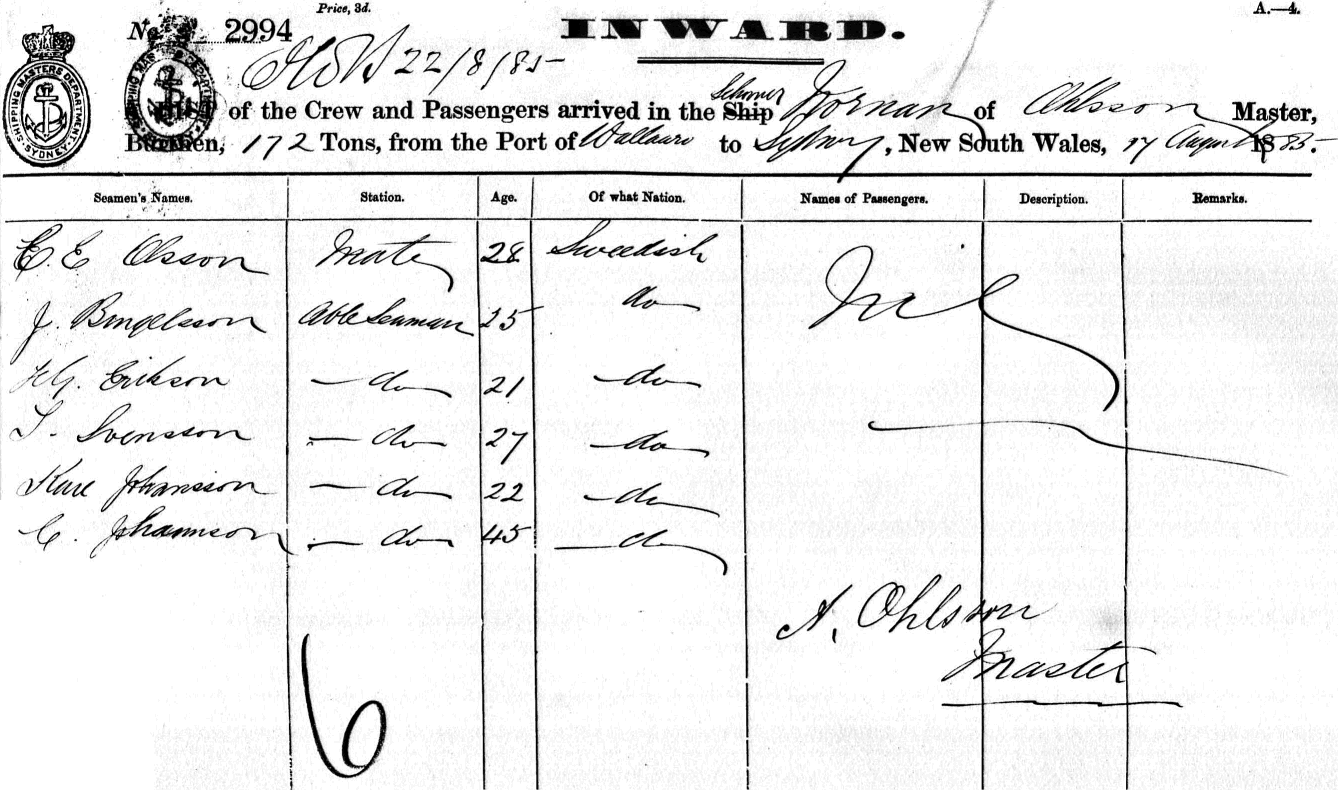 Price, 3d.
A.—4.
No. 2994
INWARD.
22/8/85
SHIPPING MASTERS DEPARTMENT SYDNEY
LIST of the Crew and Passengers arrived in the Ship Schoner Nornan of Ohlsson Master,
Burthen, 172 Tons, from the Port of Wallaroo to Sydney, New South Wales, 17 August 1885.
Seamen's Names. Station. Age. Of what Nation. Names of Passengers. Description. Remarks.
C E Olsson Mate 28 Swedish Nil
J. Bengtsson Able Seaman 25 do
Erikson — do — 21 — do —
Svensson — do — 27 — do —
Karl Johansson — do — 22 — do —
C. Johannson — do — 45 — do —
A. Ohlsson
Master
6